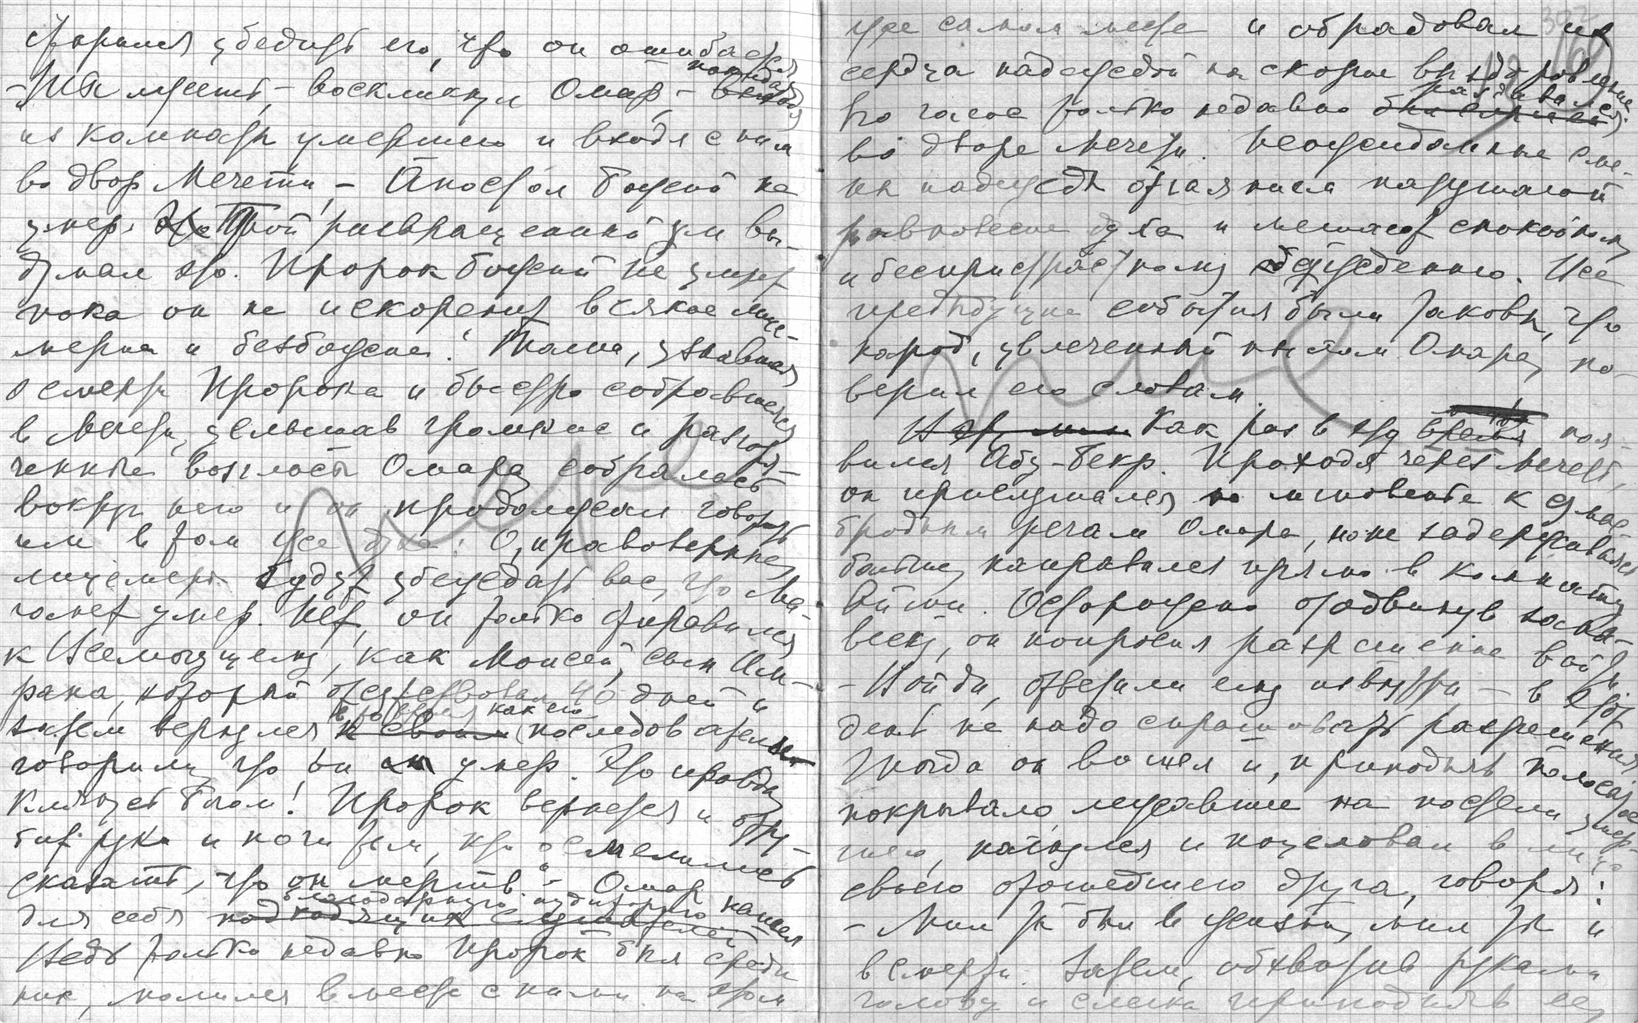 убедить его, что он ошибается
- Ты лжешь, - воскликнул Омар, - покидая
из комнаты умершего и входя с ним
во двор Мечети, - Апостол божий не
умер. Твой развращенный ум вы-
думал это. Пророк божий не умрет
пока он не искоренит всякое лице-
мерие и безбожие. Толпа, узнавшая
о смерти Пророка и быстро собравшаяся
в Мечети, услышав громкие и разгоря-
ченные возгласы Омара, собралась
вокруг него и он продолжал говорить
им в том же духе: О, правоверные,
лицемеры будут убеждать вас, что Ма-
гомет умер. Нет, он только отправился
к Всемогущему, как Моисей, сын Им-
рана, который отсутствовал 40 дней и
затем вернулся к своим последователям
говорили, что он умер. Это правда,
Клянусь Богом! Пророк вернется и отру-
бит руки и ноги тем, кто осмелились
сказать, что он мертв. - Омар нашел
для себя благодарную аудиторию подходящих слушателей
Ведь только недавно Пророк был среди
них, молился вместе с ними на этом
же самом месте и обрадовал их
сердца надеждой на скорое выздоровление
Его голос только недавно раздавался
во дворе мечети. Неожиданные сме-
ны надежды отчаянием нарушают
равновесие духа и мешают спокойному
и беспристрастному суждению. Все
предыдущие события были таковы, что
народ, увлеченный пылом Омара, по-
верил его словам.
Как раз в это время поя-
вился Абу-Бекр. Проходя через мечеть,
он прислушался на мгновение к сумас-
бродным речам Омара, но не задерживаясь
больше, направился прямо в комнату
Айши. Осторожно отодвинув занав-
веску, он попросил разрешение войти.
- Войди, ответили ему изнутри - в этот
день не надо спрашивать разрешения.
Тогда он вошел и, приподняв полосатое
покрывало, лежавшее на постели умер-
шего, нагнулся и поцеловал в лицо
своего отошедшего друга, говоря:
- Мил ты был в жизни, мил ты и
в смерти. Затем, обхватив руками
голову и слегка приподняв ее,